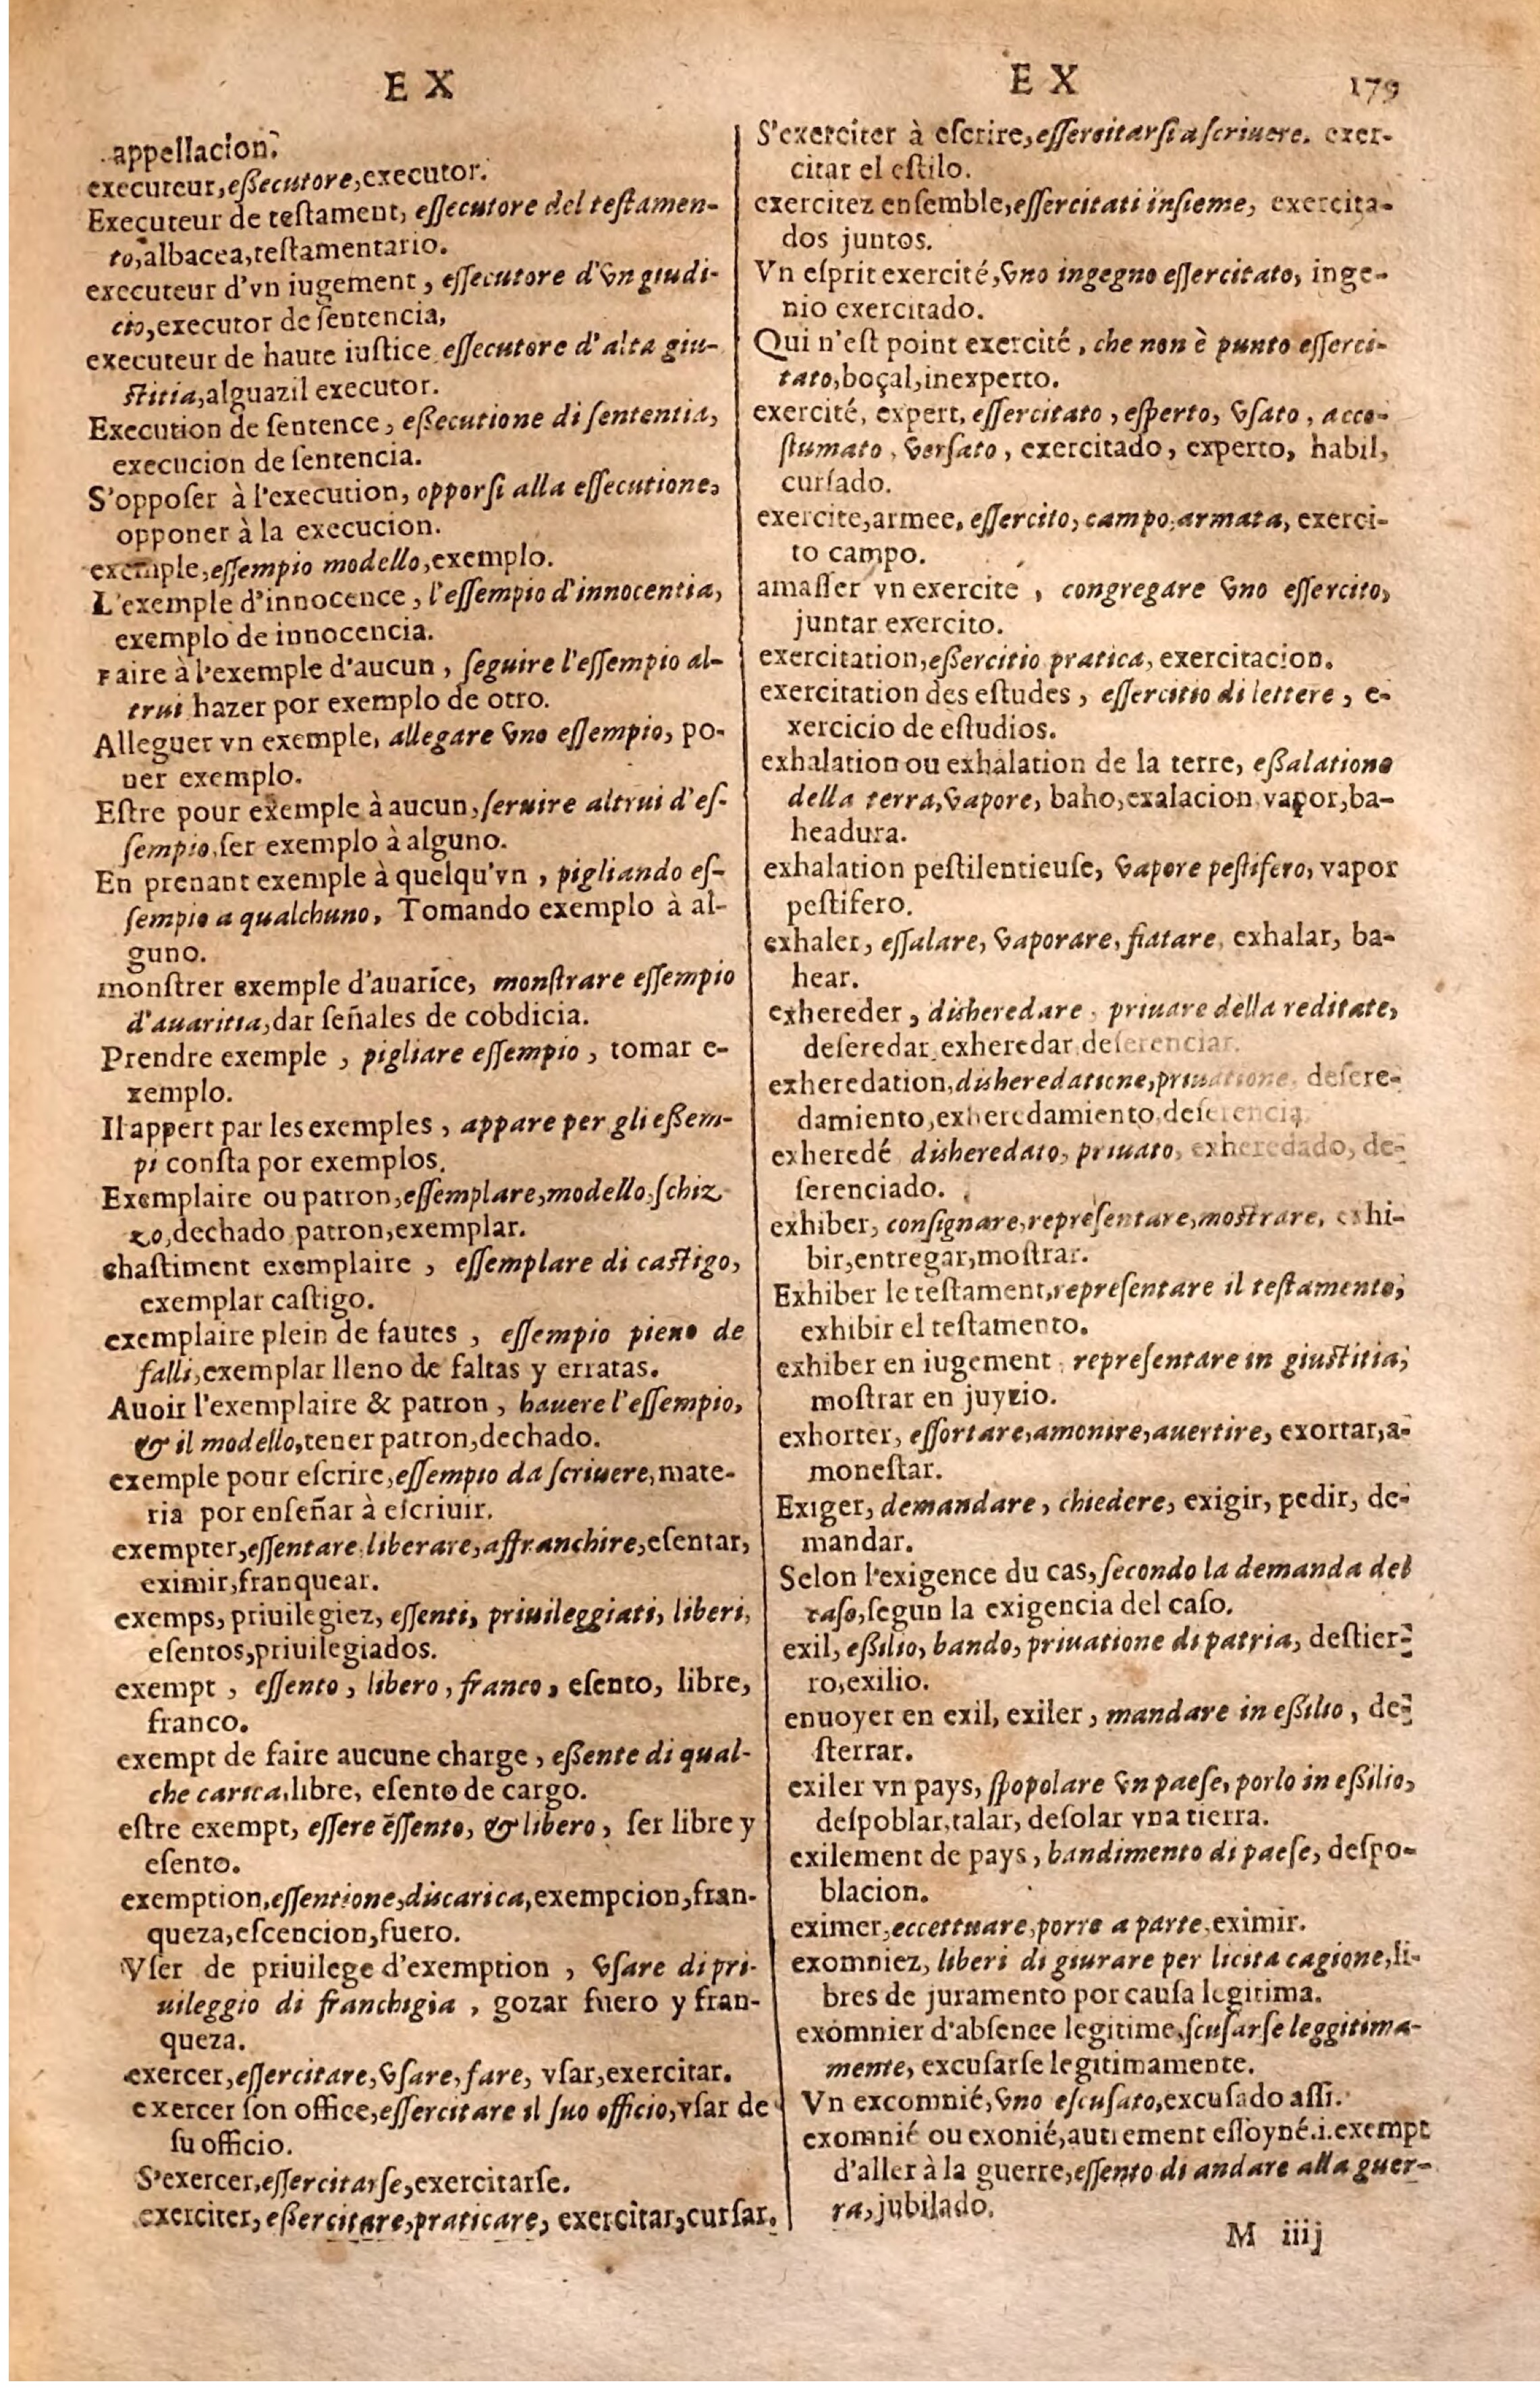 E X
appellacion.
executeur, eßecutore, executor.
Executeur de teſtament, eſſecutore del teſtamen-
to, albacea, teſtamentario.
executeur d'vn iugement, eſſecutore d'vn giudi-
cio, executor de ſentencia,
executeur de haute iuſtice eſſecutore d'alta giu-
ſtitia, alguazil executor.
Execution de ſentence, eßecutione di ſententia,
execucion de ſentencia.
S'oppoſer à l'execution, opporſi alla eſſecutione,
opponer à la execucion.
exemple, eſſempio modello, exemplo.
L'exemple d'innocence, l'eſſempio d'innocentia,
exemplo de innocencia.
Faire à l'exemple d'aucun, ſeguire l'eſſempio al-
trui hazer por exemplo de otro.
Alleguer vn exemple, allegare vno eſſempio, po-
ner exemplo.
Eſtre pour exemple à aucun, ſeruire altrui d'eſ-
ſempio, ſer exemplo à alguno.
En prenant exemple à quelqu'vn, pigliando eſ-
ſempio a qualchuno, Tomando exemplo à al-
guno.
monſtrer exemple d'auarice, monſtrare eſſempio
d'auaritia, dar ſeñales de cobdicia.
Prendre exemple, pigliare eſſempio, tomar e-
xemplo.
Il appert par les exemples, appare per gli eßem-
pi conſta por exemplos.
Exemplaire ou patron, eſſemplare, modello, ſchiz-
zo, dechado patron, exemplar.
chaſtiment exemplaire, eſſemplare di caſtigo,
exemplar caſtigo.
exemplaire plein de fautes, eſſempio pieno de
falli, exemplar lleno de faltas y erratas.
Auoir l'exemplaire & patron, hauere l'eſſempio,
& il modello, tener patron, dechado.
exemple pour eſcrire, eſſempio da ſcriuere, mate-
ria por enſeñar à eſcriuir.
exempter, eſſentare, liberare, affranchire, eſentar,
eximir, franquear.
exemps, priuilegiez, eſſenti, priuileggiati, liberi,
eſentos, priuilegiados.
exempt, eſſento, libero, franco, eſento, libre,
franco.
exempt de faire aucune charge, eßente di qual-
che carica, libre, eſento de cargo.
eſtre exempt, eſſere eſſento, & libero, ſer libre y
eſento.
exemption, eſſentione, di carica, exempcion, fran-
queza, eſcencion, fuero.
Vſer de priuilege d'exemption, vſare di pri-
uileggio di franchigia, gozar fuero y fran-
queza.
exercer, eſſercitare, vſare, fare, vſar, exercitar.
exercer ſon office, eſſercitare il ſuo officio, vſar de
ſu officio.
S'exercer, eſſercitarſe, exercitarſe.
exerciter, eßercitare, praticare, exercitar, curſar.
E X 179
S'exerciter à eſcrire, eſſercitarſi a ſcriuere. exer-
citar el eſtilo.
exercitez enſemble, eſſercitati inſieme, exercita-
dos juntos.
Vn eſprit exercité, vno ingegno eſſercitato, inge-
nio exercitado.
Qui n'eſt point exercité, che non è punto eſſerci-
tato, boçal, inexperto.
exercité, expert, eſſercitato, eſperto, vſato, acco-
ſtumato, verſato, exercitado, experto, habil,
curſado.
exercite, armee, eſſercito, campo, armata, exerci-
to campo.
amaſſer vn exercite, congregare vno eſſercito,
juntar exercito.
exercitation, eßercitio pratica, exercitacion.
exercitation des eſtudes, eſſercitio di lettere, e-
xercicio de eſtudios.
exhalation ou exhalation de la terre, eßalatione
della terra, vapore, baho, exalacion vapor, ba-
headura.
exhalation peſtilentieuſe, vapore peſtifero, vapor
peſtifero.
exhaler, eſſalare, vaporare, fiatare, exhalar, ba-
hear.
exhereder, disheredare, priuare della reditate,
deſeredar, exheredar deſerenciar.
exheredation, disheredatione, priuatione, deſere-
damiento, exheredamiento, deſerencia.
exheredé disheredato, priuato, exheredado, de-
ſerenciado.
exhiber, conſignare, repreſentare, moſtrare, exhi-
bir, entregar, moſtrar.
Exhiber le teſtament, repreſentare il teſtamento,
exhibir el teſtamento.
exhiber en iugement, repreſentare in giuſtitia,
moſtrar en juyzio.
exhorter, eſſortare, amonire, auertire, exortar, a-
moneſtar.
Exiger, demandare, chiedere, exigir, pedir, de-
mandar.
Selon l'exigence du cas, ſecondo la demanda del
caſo, ſegun la exigencia del caſo.
exil, eßilio, bando, priuatione di patria, deſtier-
ro, exilio.
enuoyer en exil, exiler, mandare in eßilio, de-
ſterrar.
exiler vn pays, ſpopolare vn paeſe, porlo in eßilio,
deſpoblar, talar, deſolar vna tierra.
exilement de pays, bandimento di paeſe, deſpo-
blacion.
eximer, eccettuare, porre a parte, eximir.
exomniez, liberi di giurare per licita cagione, li-
bres de juramento por cauſa legitima.
exomnier d'abſence legitime, ſcuſarſe leggitima-
mente, excuſarſe legitimamente.
Vn excomnié, vno eſcuſato, excuſado aſſi.
exomnié ou exonié, autrement eſſoyné. i. exempt
d'aller à la guerre, eſſento di andare alla guer-
ra, jubilado.
M iiij